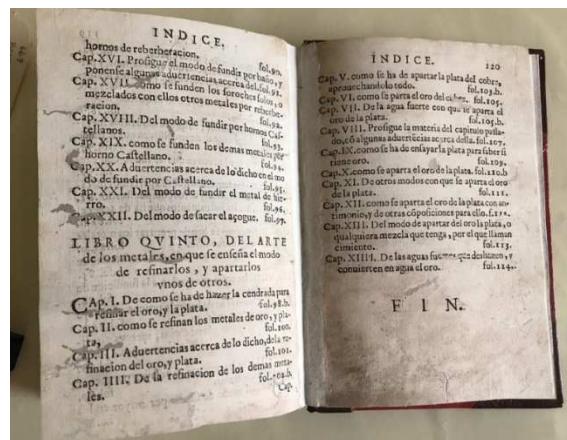 INDICE.
hornos de reberberacion. fol.90.
Cap.XVI. Prosigue el modo de fundir por baño, y
ponense algunas aduertencias acerca del. fol.91.
Cap. XVII. como se funden los soroches solos, o
mezclados con ellos otros metales por reberbe-
racion. fol.92.
Cap. XVIII. Del modo de fundir por hornos Cas-
tellanos. fol.93.
Cap. XIX. como se funden los demas metales por
horno Castellano. fol.94.
Cap.XX. Aduertencias acerca de lo dicho en el mo
do de fundir por Castellano. fol.95.
Cap. XXI. Del modo de fundir el metal de hie-
rro. fol.96.
Cap.XXII. Del modo de sacar el açogue. fol.97.
LIBRO QVINTO, DEL ARTE
de los metales, en que se enseña el modo
de refinarlos, y apartarlos
vnos de otros.
CAp. I. De como se ha de hazer la cendrada para
refinar el oro, y la plata. fol.98.b.
Cap. II. como se refinan los metales de oro, y pla-
ta, fol.100.
Cap. III. Aduertencias acerca de lo dicho, de la re-
finacion del oro, y plata. fol.101.
Cap. IIII. De la refinacion de los demas meta-
les. fol.102.b
Cap.
INDICE. 120
Cap. V. como se ha de apartar la plata del cobre,
aprouechandolo todo. fol.103.b.
Cap. VI. como se parta el oro del cobre. fol.105.
Cap. VII. De la agua fuerte con que se aparta el
oro de la plata. fol.105.b.
Cap. VIII. Prosigue la materia del capitulo passa-
do, cõ algunas aduertẽcias acerca della. fol.107.
Cap. IX. como se ha de ensayar la plata para saber si
tiene oro. fol.109.
Cap.X. como se aparta el oro de la plata. fol.110.b
Cap. XI. De otros modos con que se aparta el oro
de la plata. fol.111.
Cap. XII. como se aparta el oro de la plata con an-
timonio, y de otras cõposiciones para ello. f.112.
Cap. XIII. Del modo de apartar del oro la plata, o
qualquiera mezcla que tenga, por el que llaman
cimiento. fol.113.
Cap. XIIII. De las aguas fuertes que deshazen, y
conuierten en agua el oro. fol.114.
FIN.